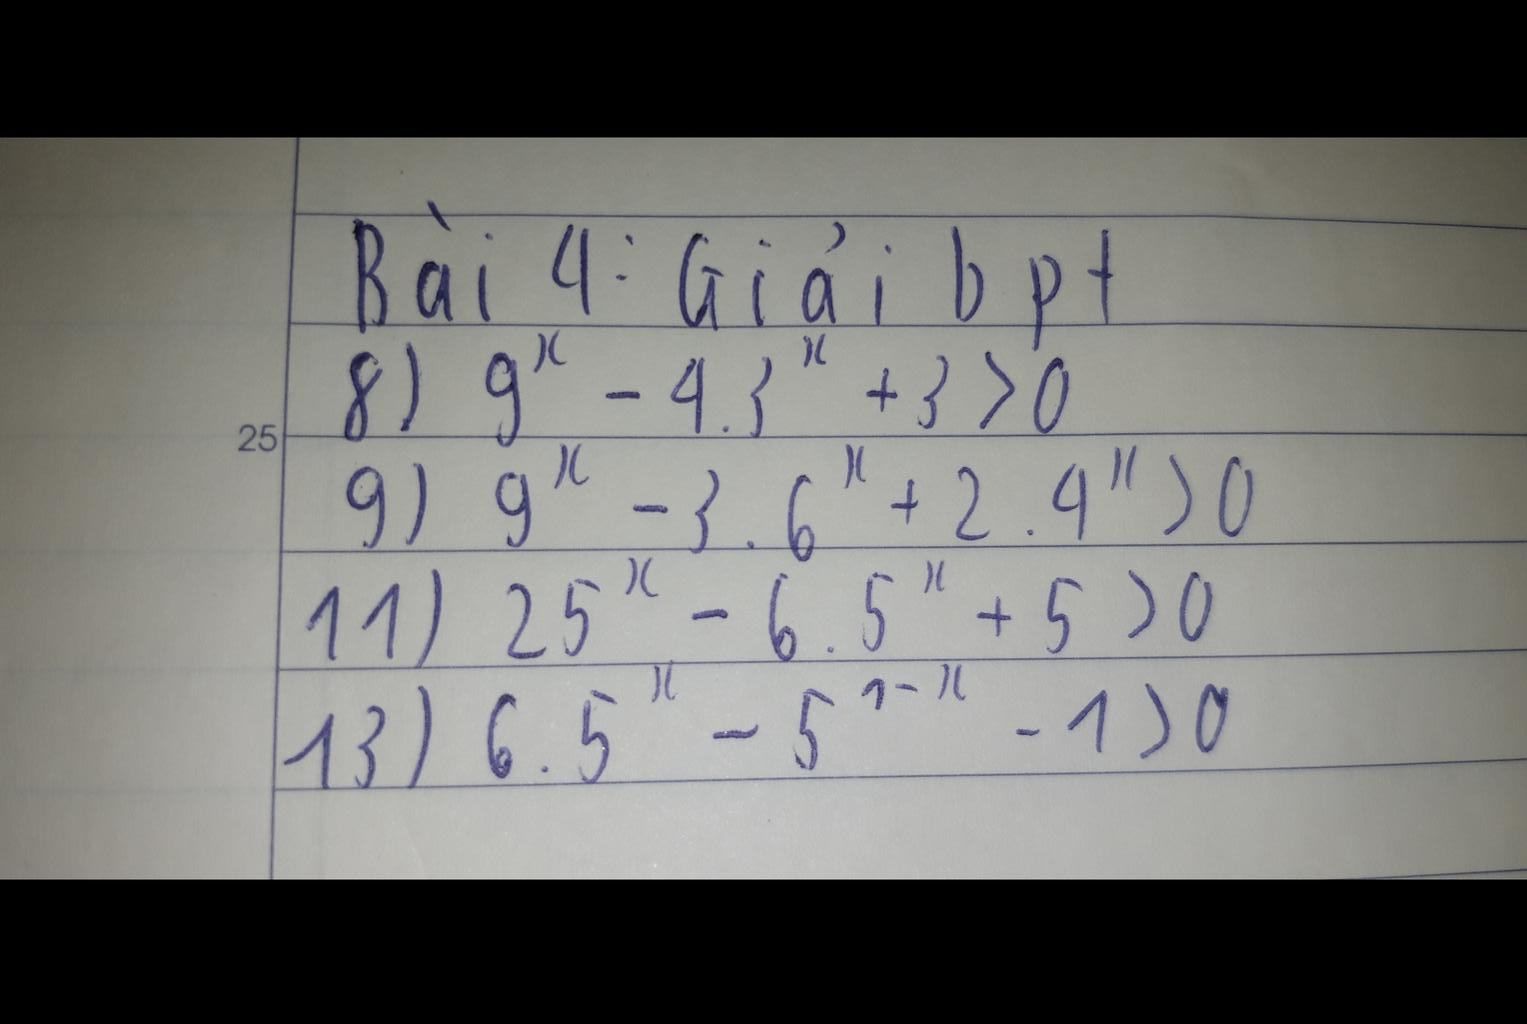 Bài 4: Giải bpt
8) 9ˣ - 4.3ˣ + 3 > 0
25
9) 9ˣ - 3.6ˣ + 2.4ˣ > 0
11) 25ˣ - 6.5ˣ + 5 > 0
13) 6.5ˣ - 5¹⁻ˣ - 1 > 0